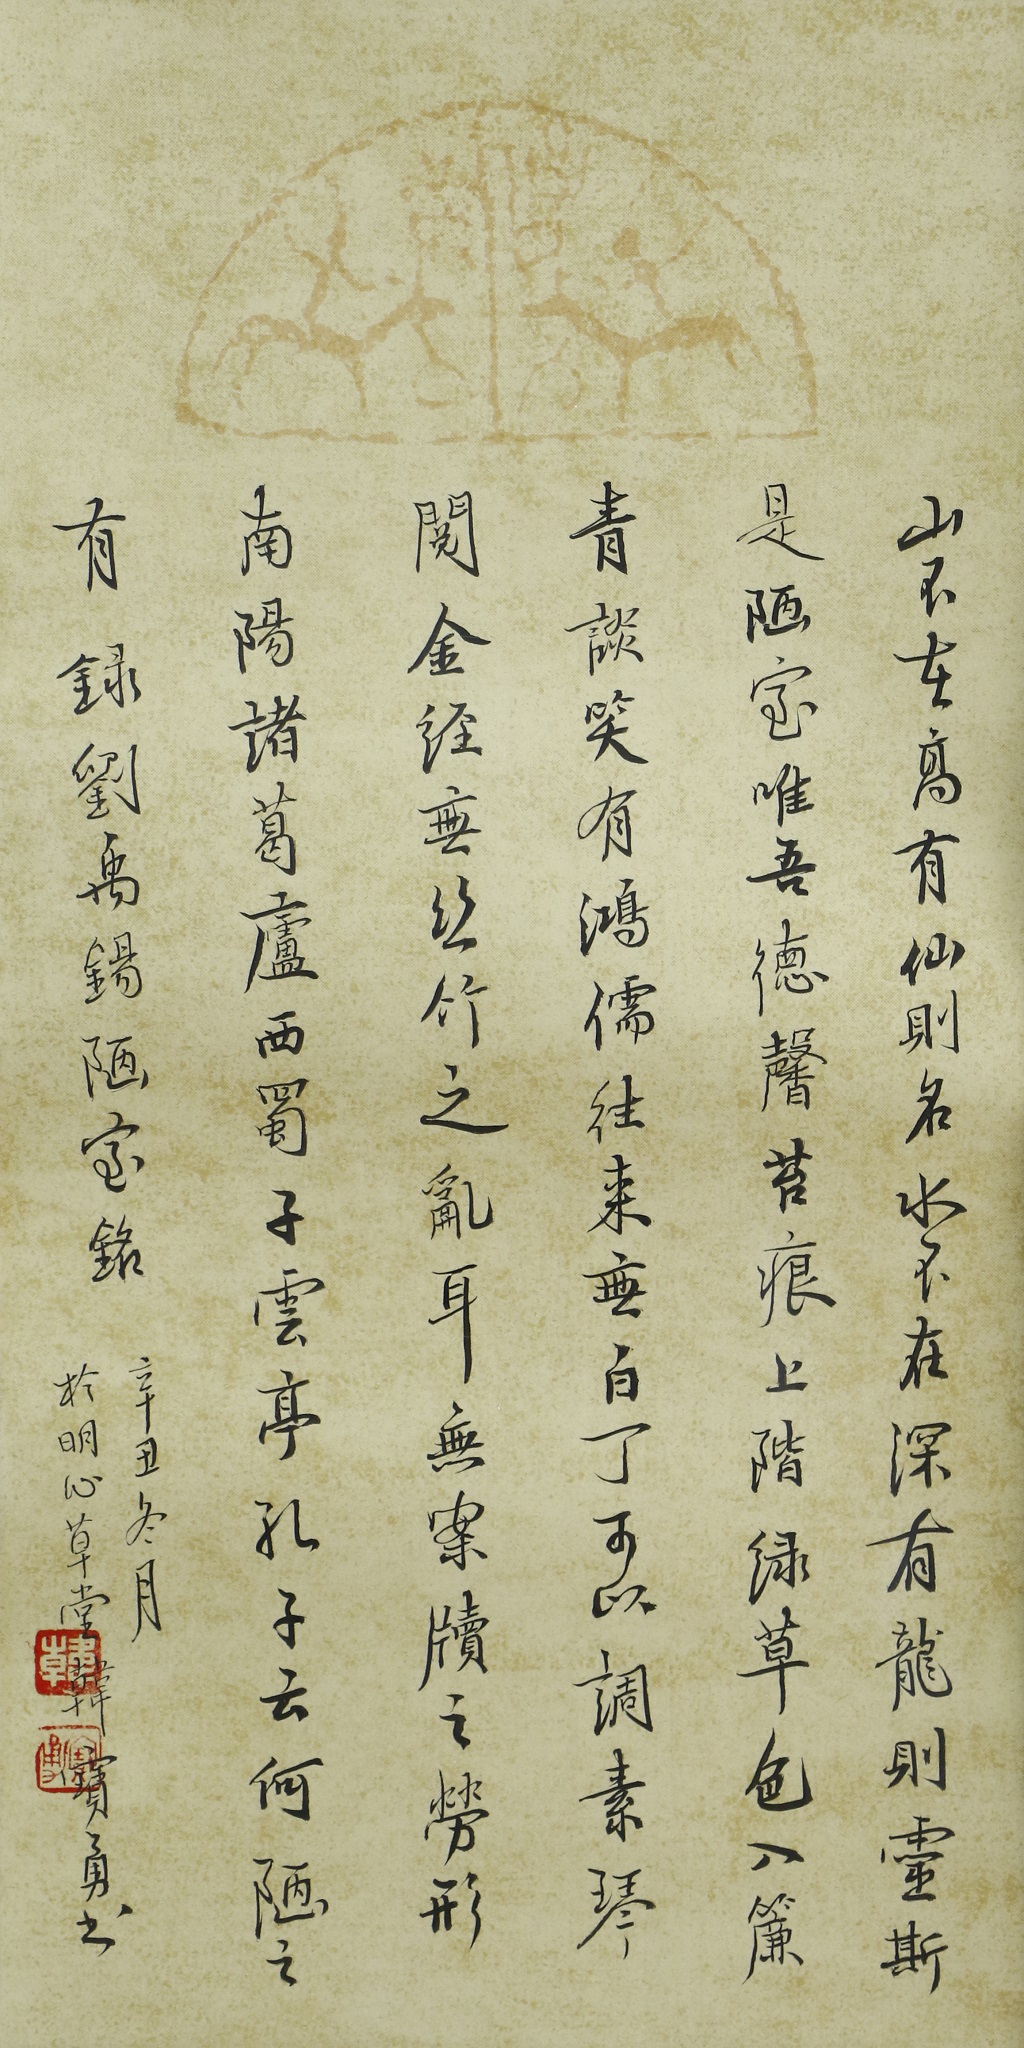 山不在高有仙則名水不在深有龍則靈斯
是陋室唯吾德馨苔痕上階緑草色入簾
青談笑有鴻儒往来無白丁可以調素琴
閱金經無丝竹之亂耳無案牘之勞形
南陽諸葛廬西蜀子雲亭孔子云何陋之
有 録劉禹錫陋室銘
辛丑冬月
於明心草堂韓寶勇书